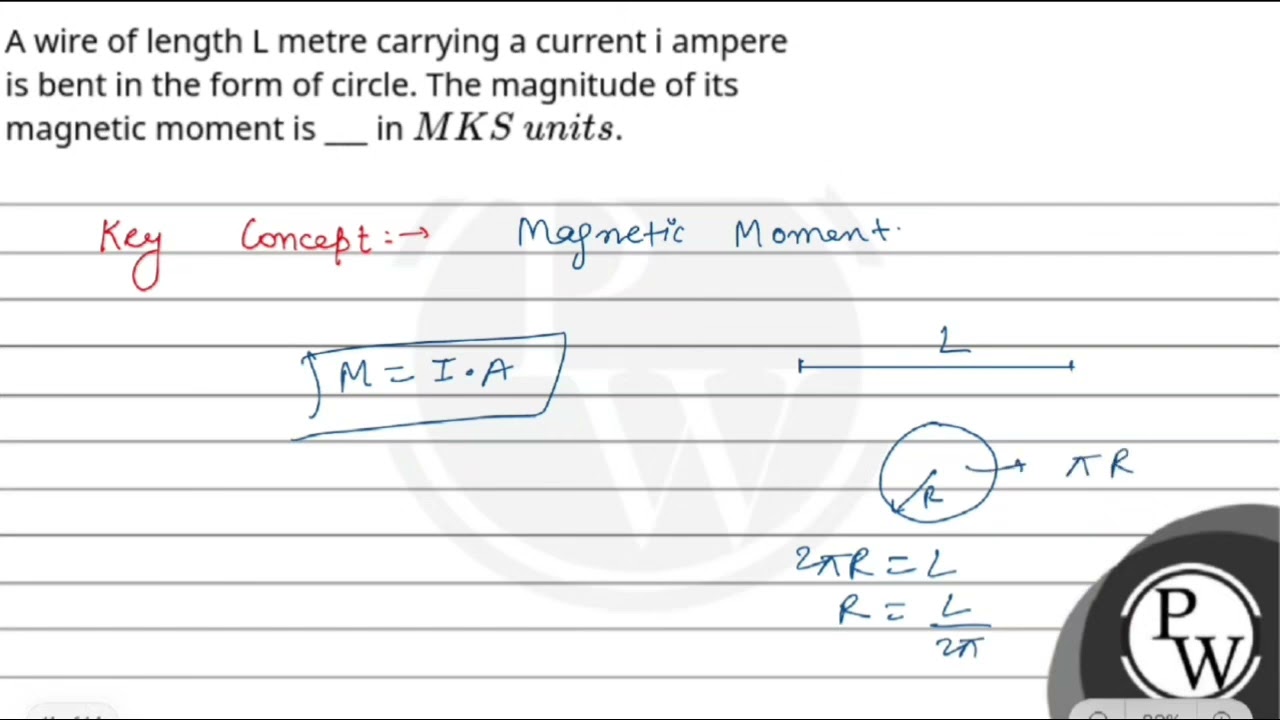 A wire of length L metre carrying a current i ampere
is bent in the form of circle. The magnitude of its
magnetic moment is ___ in MKS units.
Key Concept:→ Magnetic Moment.
M = I·A
L
R
πR
2πR = L
R = L/2π
P
W
P
W